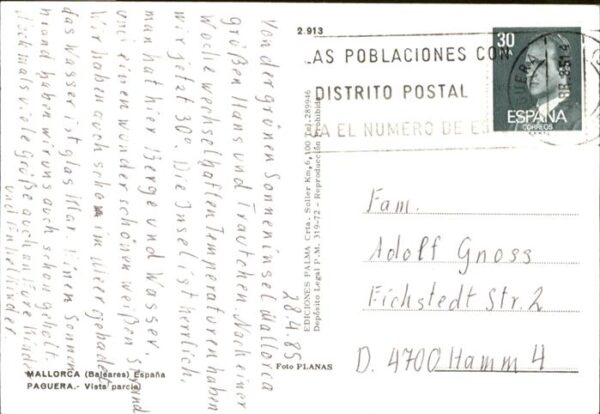 2.913
28.4.85
Von der grünen Sonneninsel Mallorca
grüßen Hans und Trautchen. Nach einer
Woche wechselhaften Temperaturen haben
wir jetzt 30°. Die Insel ist herrlich,
man hat hier Berge und Wasser,
und einen wunder schönen weißen Strand
Wir haben auch schon im Meer gebadet
das Wasser ist glas klar. Einen Sonnen
brand haben wir uns auch schon geholt.
Nochmals viele Grüße auch an Eure Kinder
und Enkelkinder.
MALLORCA (Baleares) España
PAGUERA.- Vista parcial
EDICIONES PALMA Crta. Soller Km, 6,100 Tel. 289946
Depósito Legal P.M. 319-72 - Reproducción Prohibida
Foto PLANAS
AS POBLACIONES CON
DISTRITO POSTAL
A EL NUMERO DE ES
30
ESPAÑA
CORREOS
Fam.
Adolf Gnoss
Eichstedt Str. 2
D. 4700 Hamm 4